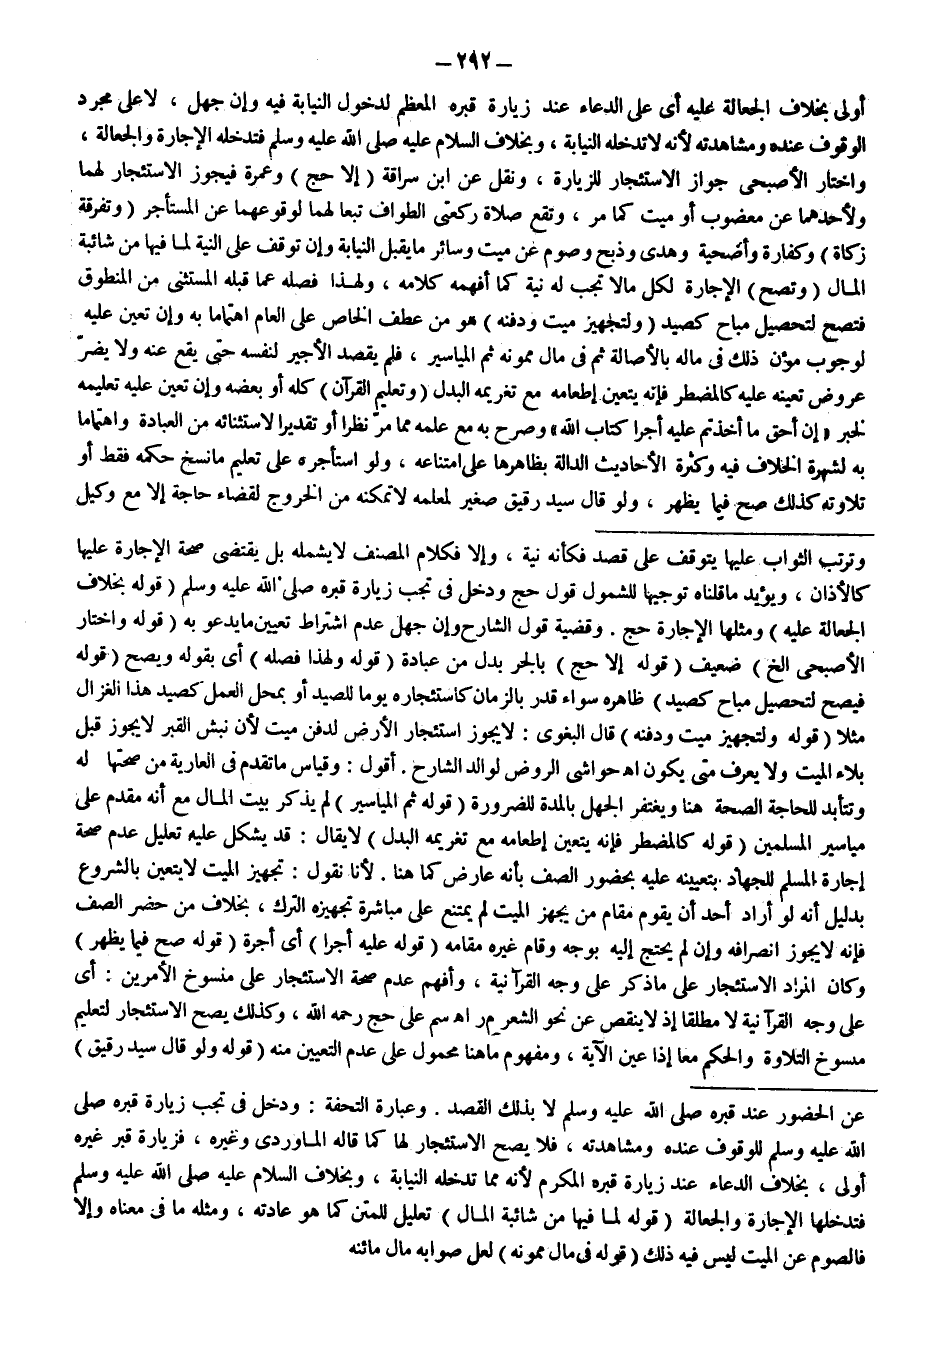 — ٢٩٢ —
أولى بخلاف الجعالة عليه أى على الدعاء عند زيارة قبره المعظم لدخول النيابة فيه وإن جهل ، لا على مجرد
الوقوف عنده ومشاهدته لأنه لا تدخله النيابة ، وبخلاف السلام عليه صلى الله عليه وسلم فتدخله الإجارة والجعالة ،
واختار الأصبحى جواز الاستئجار للزيارة ، ونقل عن ابن سراقة ( إلا حج ) وعمرة فيجوز الاستئجار لهما
ولأحدهما عن معضوب أو ميت كما مر ، وتقع صلاة ركعتى الطواف تبعا لهما لوقوعهما عن المستأجر ( وتفرقة
زكاة ) وكفارة وأضحية وهدى وذبح وصوم عن ميت وسائر مايقبل النيابة وإن توقف على النية لما فيها من شائبة
المال ( وتصح ) الإجارة لكل مالا تجب له نية كما أفهمه كلامه ، ولهذا فصله عما قبله المستثنى من المنطوق
فتصح لتحصيل مباح كصيد ( ولتجهيز ميت ودفنه ) هو من عطف الخاص على العام اهتماما به وإن تعين عليه
لوجوب مؤن ذلك فى ماله بالأصالة ثم فى مال ممونه ثم المياسير ، فلم يقصد الأجير لنفسه حتى يقع عنه ولا يضرّ
عروض تعينه عليه كالمضطر فإنه يتعين إطعامه مع تغريمه البدل ( وتعليم القرآن ) كله أو بعضه وإن تعين عليه تعليمه
لخبر « إن أحق ما أخذتم عليه أجرا كتاب الله » وصرح به مع علمه مما مرّ نظرا أو تقديرا لاستثنائه من العبادة واهتماما
به لشهرة الخلاف فيه وكثرة الأحاديث الدالة بظاهرها على امتناعه ، ولو استأجره على تعليم مانسخ حكمه فقط أو
تلاوته كذلك صح فيما يظهر ، ولو قال سيد رقيق صغير لمعلمه لا تمكنه من الخروج لقضاء حاجة إلا مع وكيل
وترتب الثواب عليها يتوقف على قصد فكأنه نية ، وإلا فكلام المصنف لايشمله بل يقتضى صحة الإجارة عليها
كالأذان ، ويؤيد ماقلناه توجيها للشمول قول حج ودخل فى تجب زيارة قبره صلى الله عليه وسلم ( قوله بخلاف
الجعالة عليه ) ومثلها الإجارة حج . وقضية قول الشارح وإن جهل عدم اشتراط تعيين مايدعو به ( قوله واختار
الأصبحى الخ ) ضعيف ( قوله إلا حج ) بالجر بدل من عبادة ( قوله ولهذا فصله ) أى بقوله ويصح ( قوله
فيصح لتحصيل مباح كصيد ) ظاهره سواء قدر بالزمان كاستئجاره يوما للصيد أو بمحل العمل كصيد هذا الغزال
مثلا ( قوله ولتجهيز ميت ودفنه ) قال البغوى : لايجوز استئجار الأرض لدفن ميت لأن نبش القبر لايجوز قبل
بلاء الميت ولا يعرف متى يكون اه حواشى الروض لوالد الشارح . أقول : وقياس ماتقدم فى العارية من صحتها له
وتتأبد للحاجة الصحة هنا ويغتفر الجهل بالمدة للضرورة ( قوله ثم المياسير ) لم يذكر بيت المال مع أنه مقدم على
مياسير المسلمين ( قوله كالمضطر فإنه يتعين إطعامه مع تغريمه البدل ) لايقال : قد يشكل عليه تعليل عدم صحة
إجارة المسلم للجهاد بتعيينه عليه بحضور الصف بأنه عارض كما هنا . لأنا نقول : تجهيز الميت لايتعين بالشروع
بدليل أنه لو أراد أحد أن يقوم مقام من يجهز الميت لم يمتنع على مباشرة تجهيزه الترك ، بخلاف من حضر الصف
فإنه لايجوز انصرافه وإن لم يحتج إليه بوجه وقام غيره مقامه ( قوله عليه أجرا ) أى أجرة ( قوله صح فيما يظهر )
وكان المراد الاستئجار على ماذكر على وجه القرآنية ، وأفهم عدم صحة الاستئجار على منسوخ الأمرين : أى
على وجه القرآنية لا مطلقا إذ لاينقص عن نحو الشعر مر اه سم على حج رحمه الله ، وكذلك يصح الاستئجار لتعليم
منسوخ التلاوة والحكم معا إذا عين الآية ، ومفهوم ماهنا محمول على عدم التعيين منه ( قوله ولو قال سيد رقيق )
عن الحضور عند قبره صلى الله عليه وسلم لا بذلك القصد . وعبارة التحفة : ودخل فى تجب زيارة قبره صلى
الله عليه وسلم للوقوف عنده ومشاهدته ، فلا يصح الاستئجار لها كما قاله الماوردى وغيره ، فزيارة قبر غيره
أولى ، بخلاف الدعاء عند زيارة قبره المكرم لأنه مما تدخله النيابة ، وبخلاف السلام عليه صلى الله عليه وسلم
فتدخلها الإجارة والجعالة ( قوله لما فيها من شائبة المال ) تعليل للمتن كما هو عادته ، ومثله ما فى معناه وإلا
فالصوم عن الميت ليس فيه ذلك ( قوله فى مال ممونه ) لعل صوابه مال مائنه